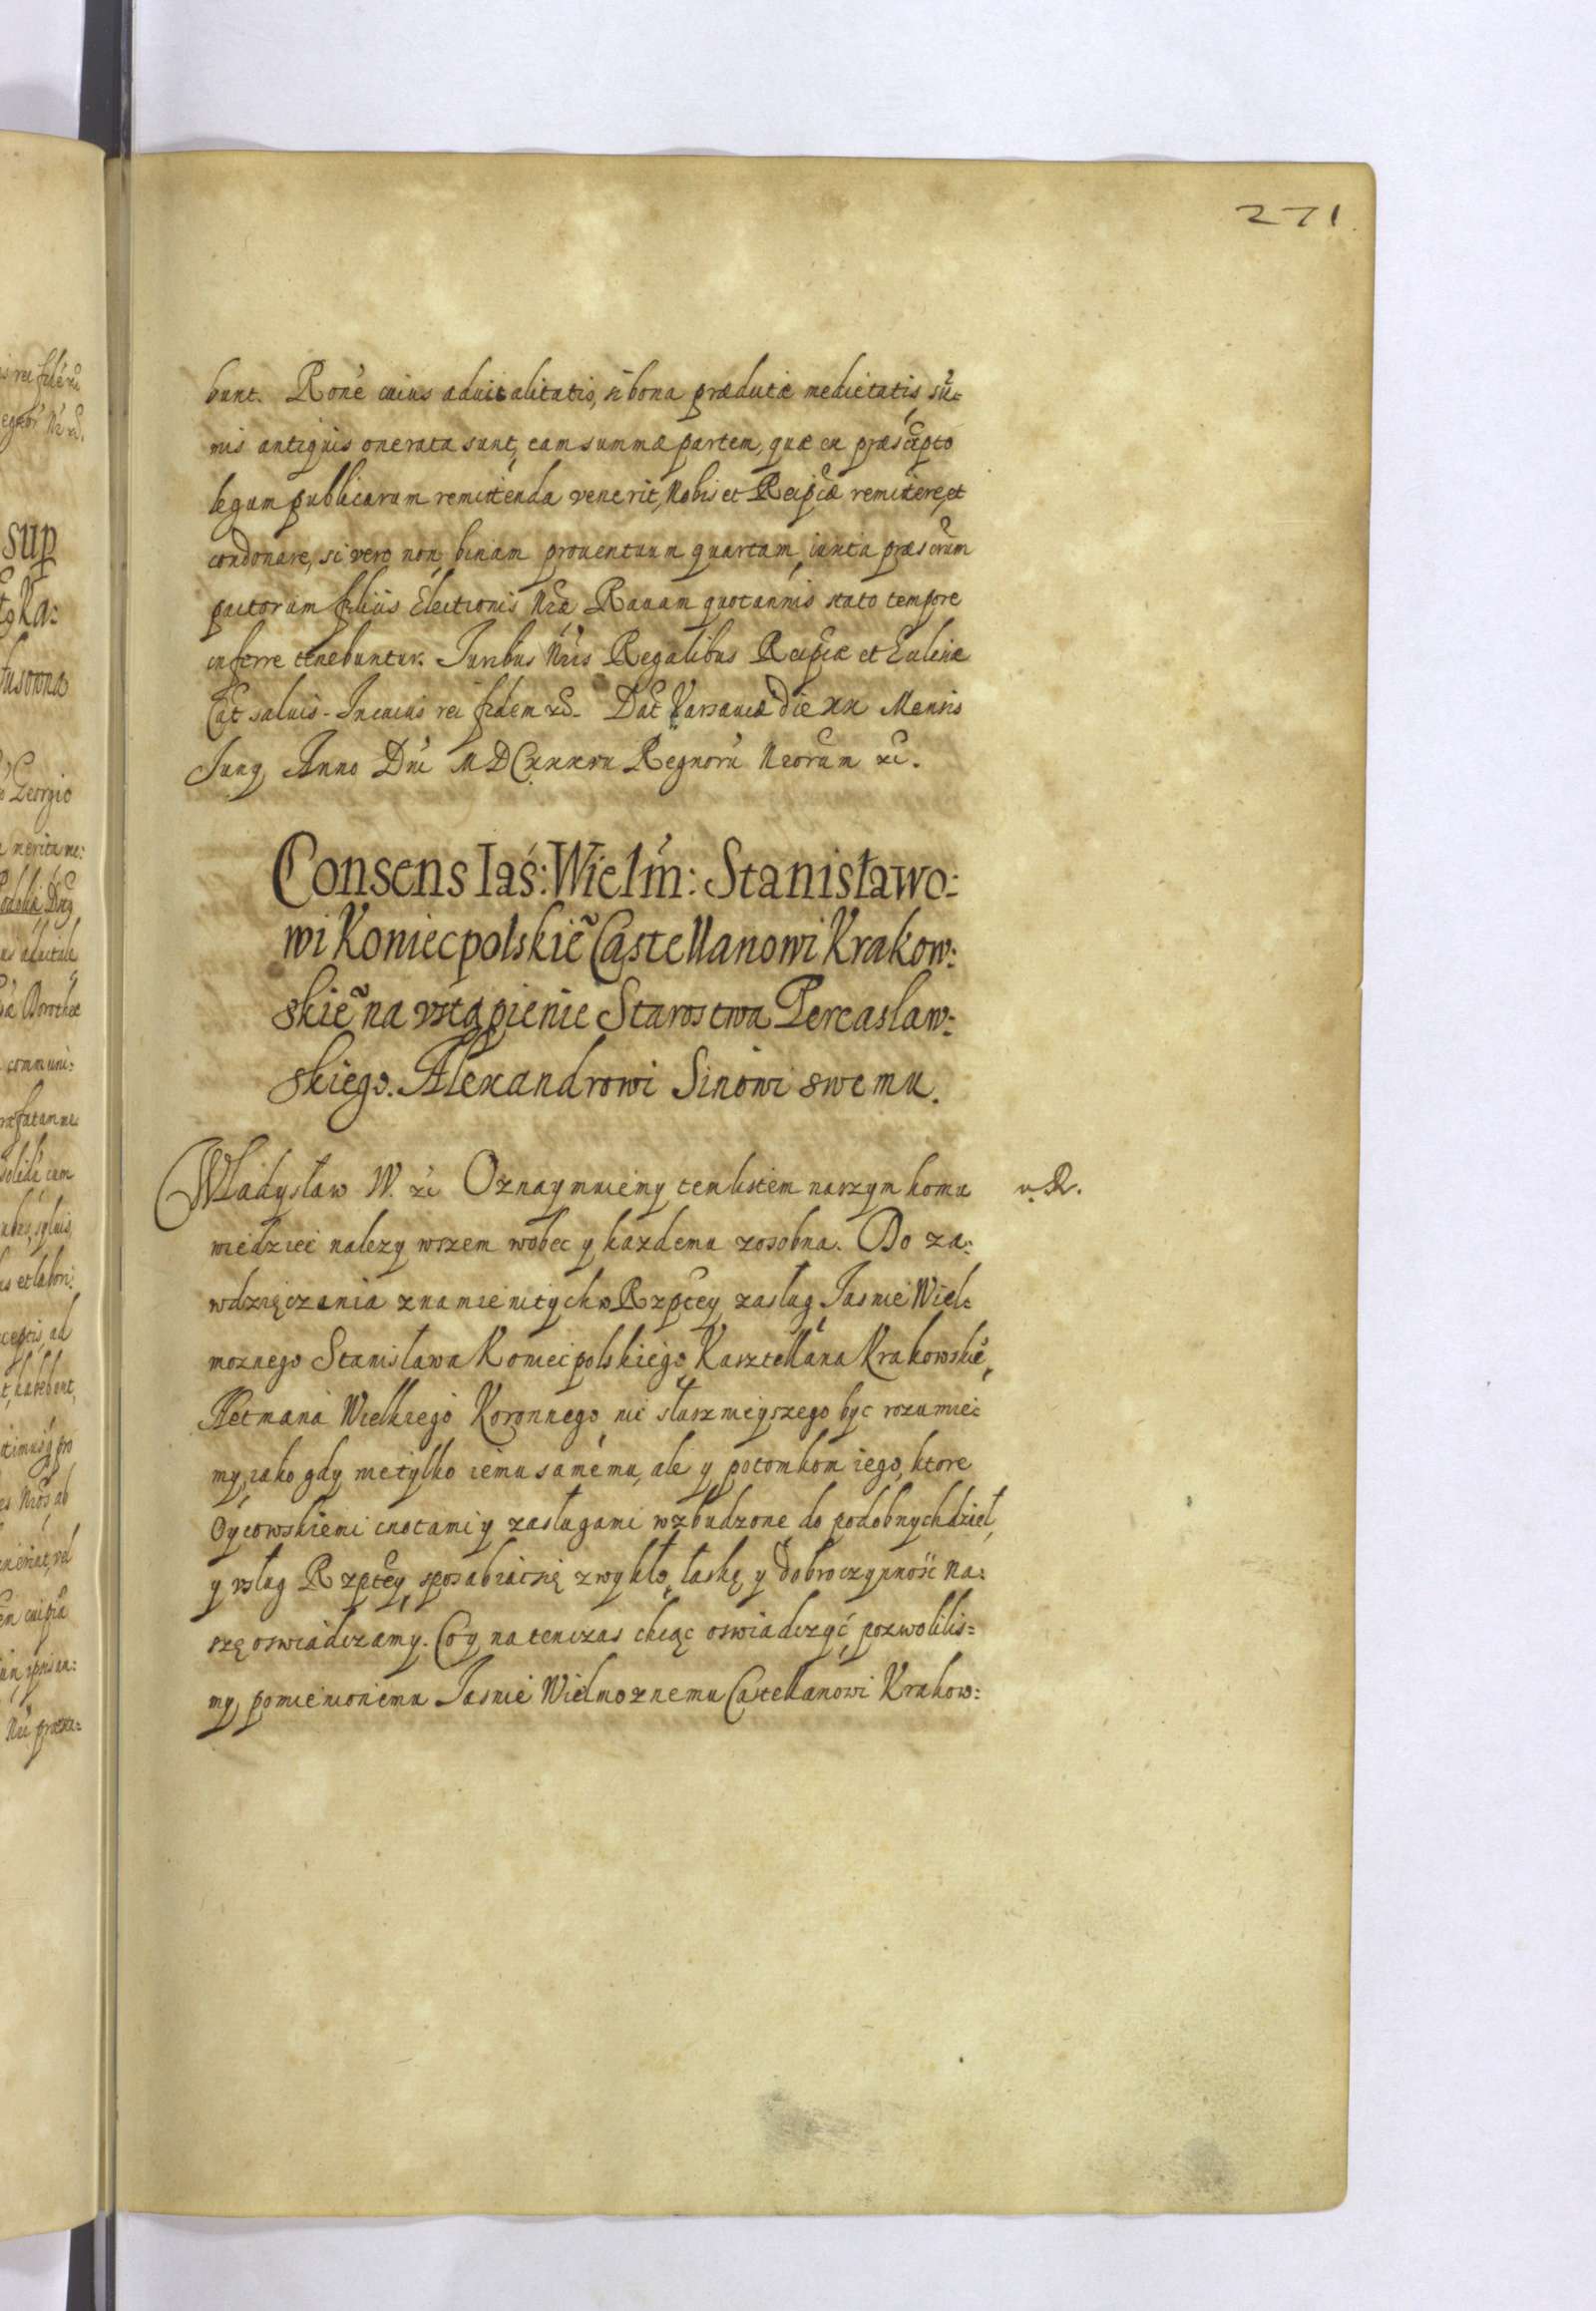 271
bunt. Rone cuius aduitalitatis, si bona prædictæ medietatis sũ=
mis antiquis onerata sunt, eam summæ partem, quæ ex præscripto
legum publicarum remittenda venerit, Nobis et Reipcæ remittere, et
condonare, si vero non, binam prouentuum quartam, iuxta præscrum
pactorum fœliūs Electionis Nræ, Rauam quotannis stato tempore
inferre tenebuntur. Iuribus Nris Regalibus Reipcæ et Eccliæ
Catt saluis. In cuius rei fidem &c. Dat Varsauiæ die xx Mensis
Iunÿ Anno Dni MDCxxxvii Regnorũ Nrorum &c.
Consens Iaś: Wielm: Stanisławo:
wi Koniecpolskie͂ Castellanowi Krakow:
skie͂ na vstąpienie Starostwa Pereaslaw:
skiego. Alexandrowi Sinowi swemu.
Władysław IV. &c Oznaymuiemy tem listem naszym komu
v. R.
wiedziec nalezy wszem wobec y kazdemu zosobna. Do za:
wdzięczenia znamienitych w Rzptey zasług Iasnie Wiel:
moznego Stanisława Koniecpolskiego, Kasztellana Krakowskie͂,
Hetmana Wielkiego Koronnego, nic słuszneyszego byc rozumie:
my, iako gdy nie tylko iemu samemu, ale y potomkom iego, ktore
Oycowskiemi cnotami y zasługami wzbudzone, do podobnych dzieł,
y vsług Rzptey, sposabiac się zwykło, łaskę y dobroczynnosc na:
szę oswiadczamy. Co y na ten czas chcąc oswiadczyć, pozwolilis=
my, pomienionemu Iasnie Wielmoznemu Castellanowi Krakow: